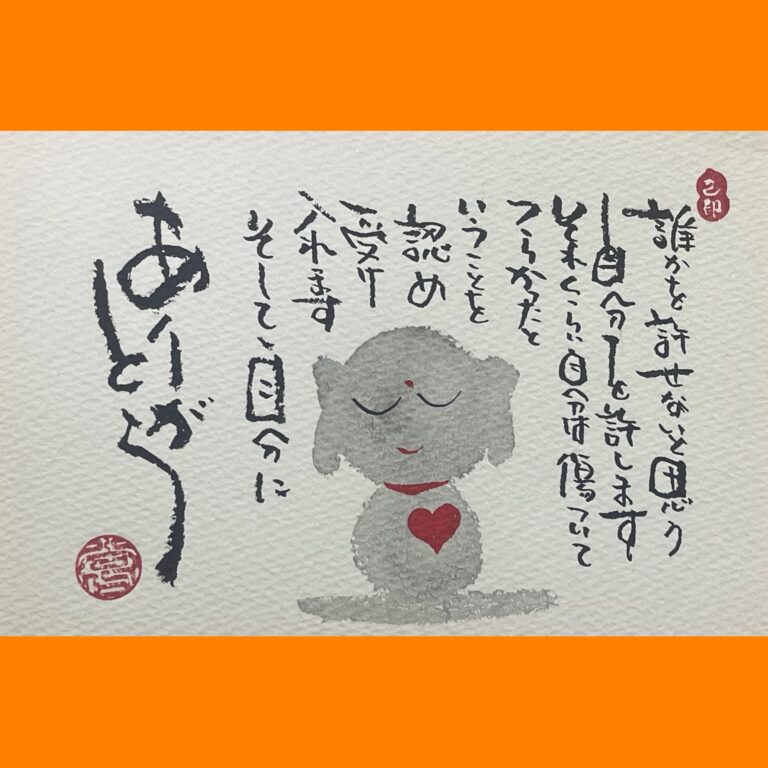 誰かを許せないと思う
「自分」を許します
それくらい自分は傷ついて
つらかったと
いうことを
認め
受け
入れます
そして、自分に
ありがとう